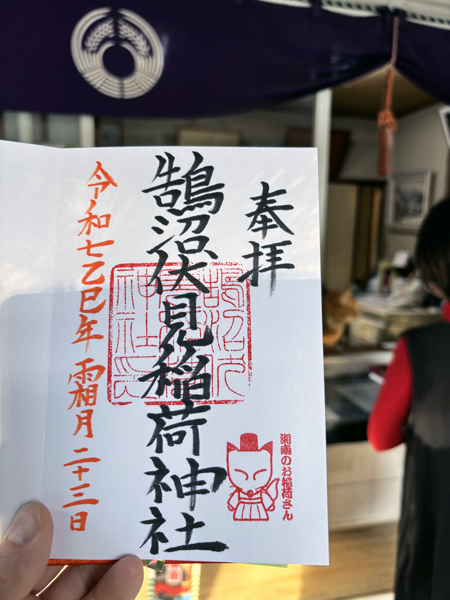 奉拝
鵠沼伏見稲荷神社
令和七乙巳年 霜月 二十三日
湘南のお稲荷さん